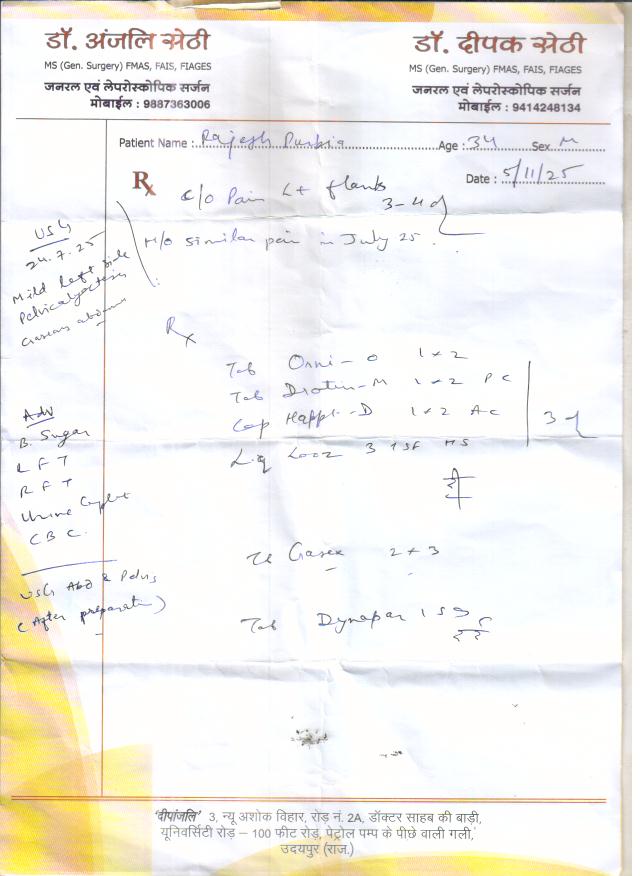 डॉ. अंजलि सेठी
MS (Gen. Surgery) FMAS, FAIS, FIAGES
जनरल एवं लेपरोस्कोपिक सर्जन
मोबाईल : 9887363006
डॉ. दीपक सेठी
MS (Gen. Surgery) FMAS, FAIS, FIAGES
जनरल एवं लेपरोस्कोपिक सर्जन
मोबाईल : 9414248134
Patient Name : Rajesh Age : 34 Sex M
Date : 5/11/25
Rx
c/o Pain Lt flanks
3-4d
H/o similar pain in July 25.
USG
24.7.25
Mild Left side
Pelvicalyectasis
Gaseous
Rx
Tab Orni-O 1x2
Tab Drotin-M 1x2 PC
Cap Happi-D 1x2 AC
3d
Liq Looz 3 TSF HS
Adv
B. Sugar
LFT
RFT
Urine
CBC.
USG Abd & Pelvis
(After preparation)
Gasex 2x3
Tab Dynapar 1 SOS
'दीपांजलि' 3, न्यू अशोक विहार, रोड़ नं. 2A, डॉक्टर साहब की बाड़ी,
यूनिवर्सिटी रोड़ – 100 फीट रोड़, पेट्रोल पम्प के पीछे वाली गली,
उदयपुर (राज.)